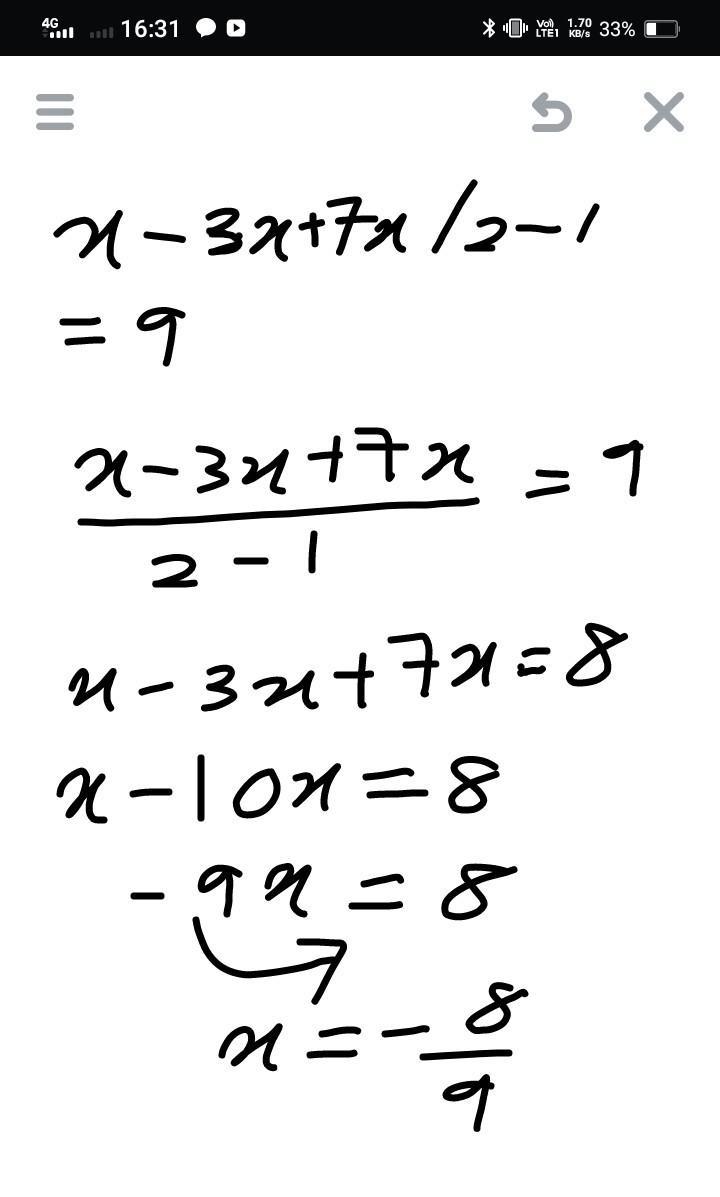 4G 16:31 Vo) LTE1 1.70 KB/s 33%
x - 3x + 7x / 2 - 1
= 9
x - 3x + 7x = 9
2 - 1
x - 3x + 7x = 8
x - 10x = 8
- 9x = 8
x = - 8
9